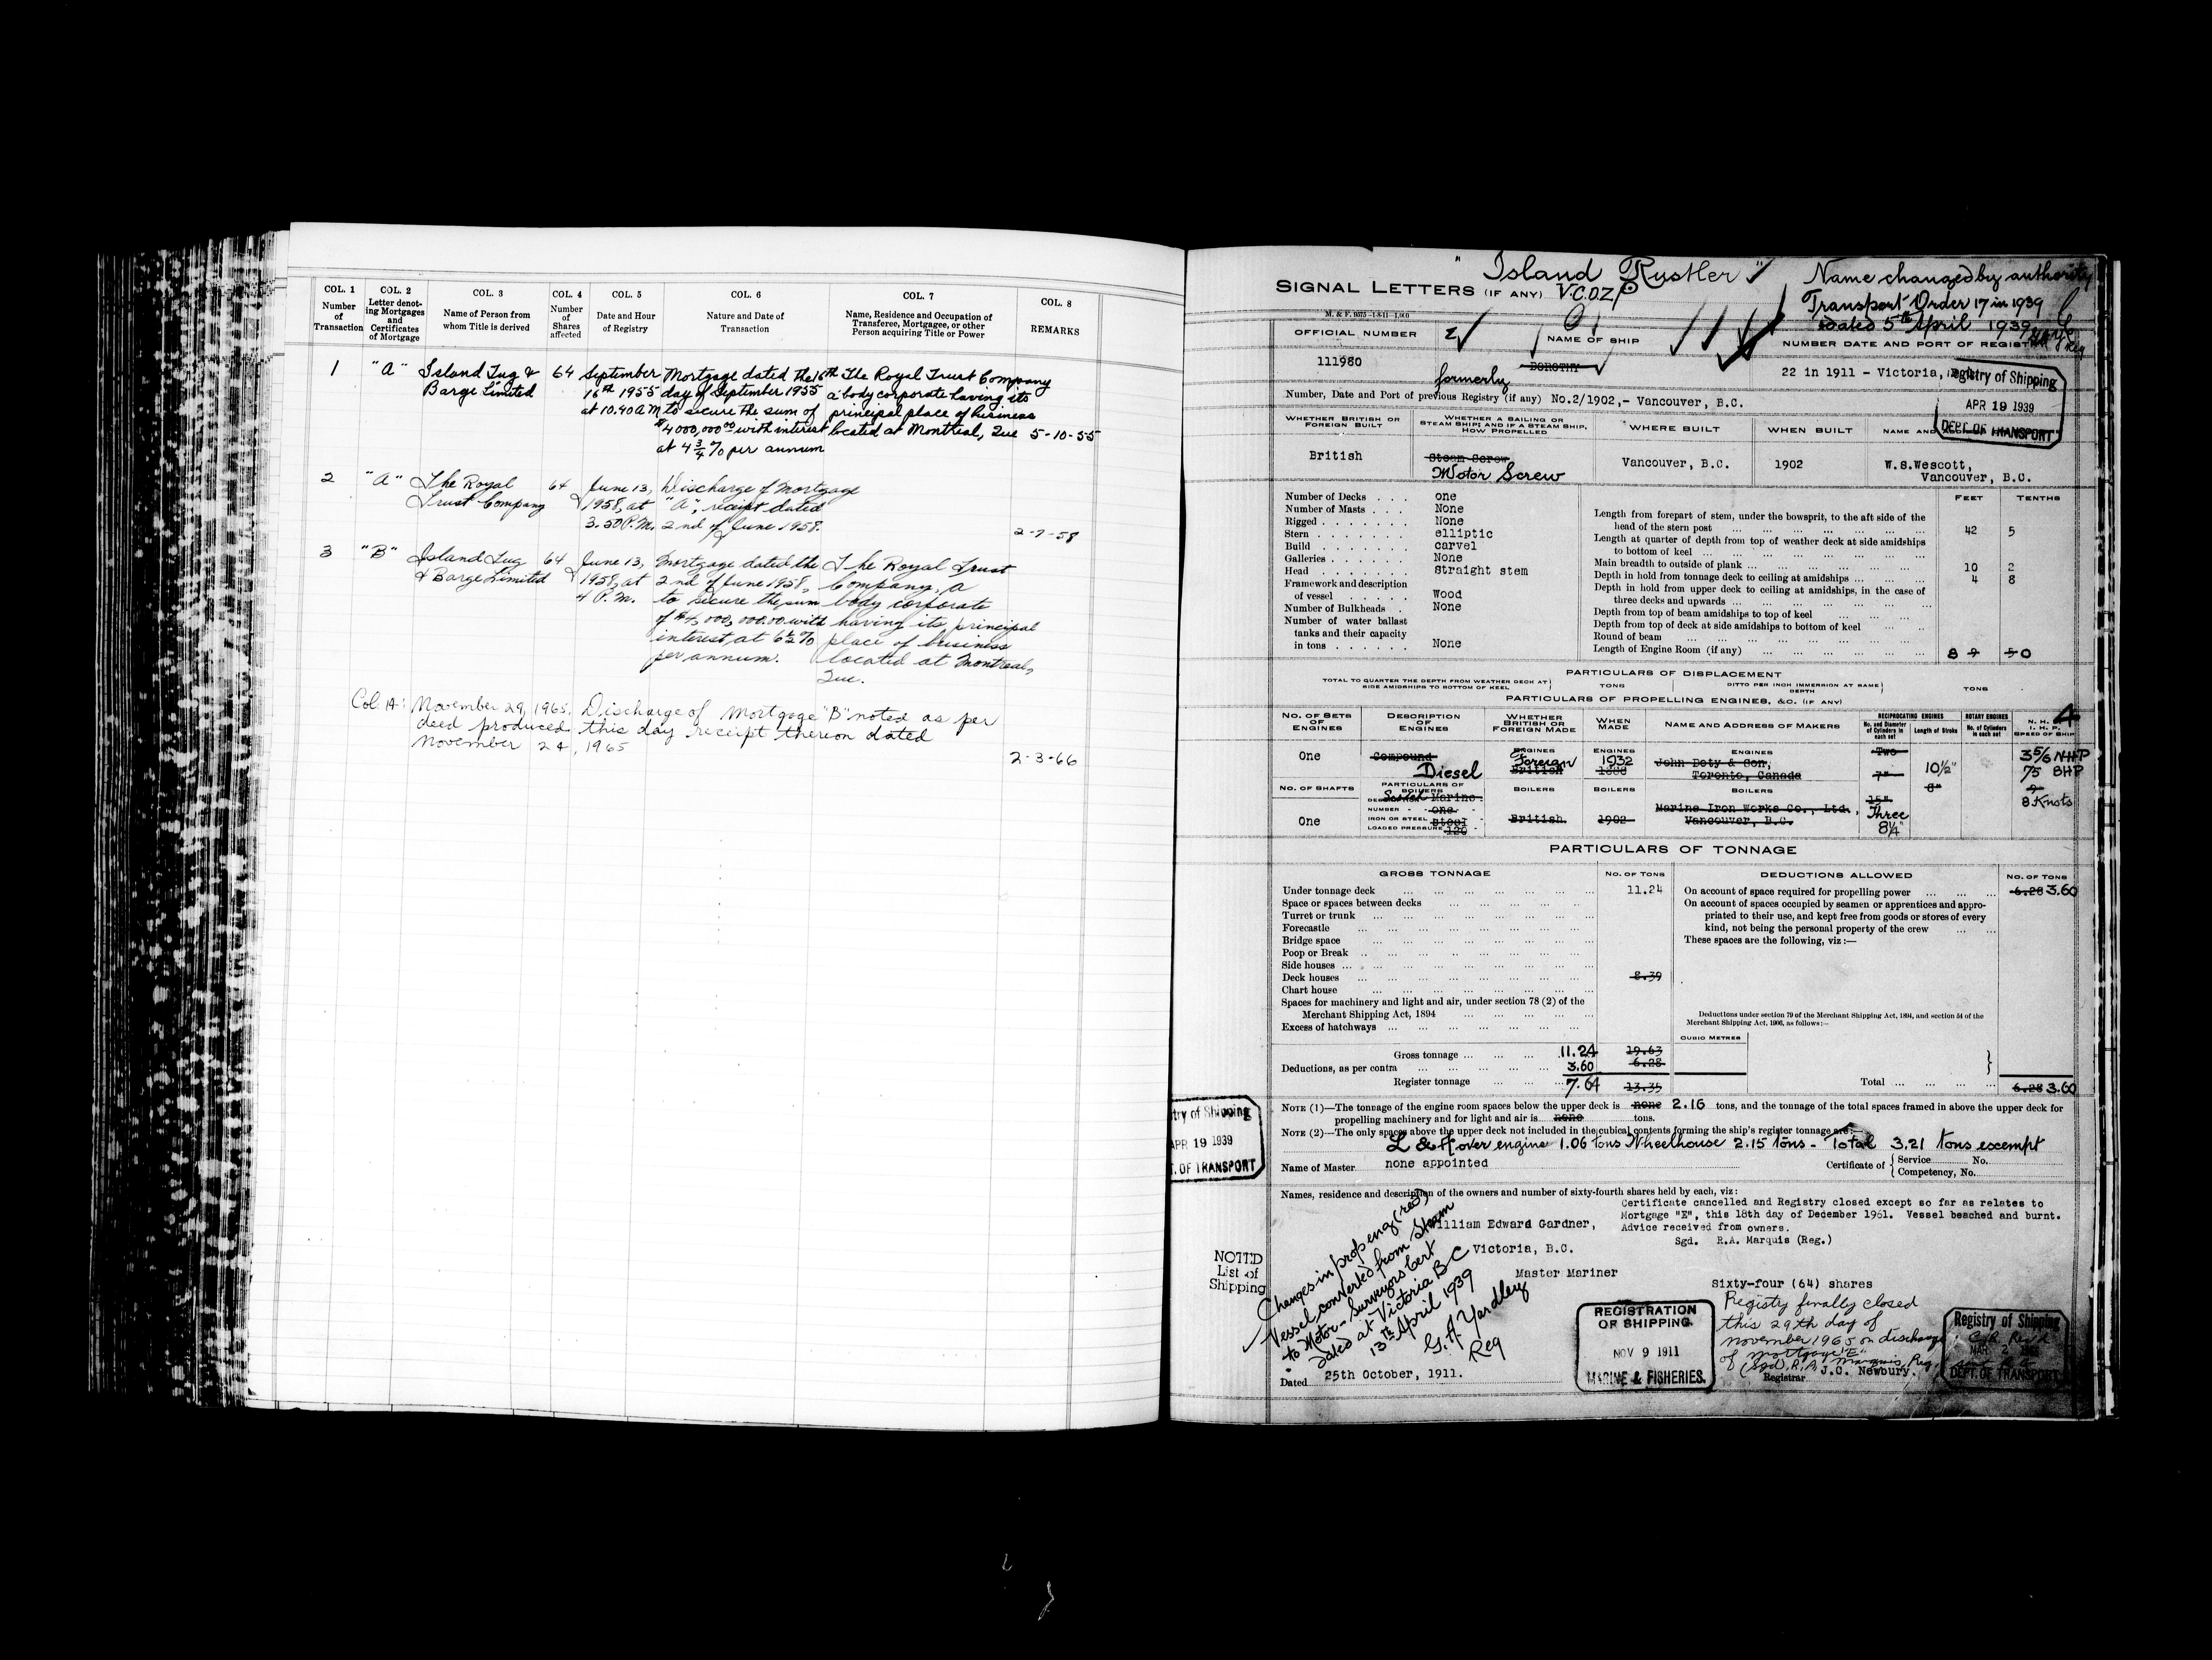 COL. 1
Number
of
Transaction
COL. 2
Letter denot-
ing Mortgages
and
Certificates
of Mortgage
COL. 3
Name of Person from
whom Title is derived
COL. 4
Number
of
Shares
affected
COL. 5
Date and Hour
of Registry
COL. 6
Nature and Date of
Transaction
COL. 7
Name, Residence and Occupation of
Transferee, Mortgagee, or other
Person acquiring Title or Power
COL. 8
REMARKS
1 "A" Island Tug & 64 September Mortgage dated the 16th The Royal Trust Company
Barge Limited 16th 1955 day of September 1955 a body corporate having its
at 10.40 AM to secure the sum of principal place of business
$4000,000.00 with interest located at Montreal, Que 5-10-55
at 4 3/4 % per annum
2 "A" The Royal 64 June 13, Discharge of Mortgage
Trust Company 1958, at "A", receipt dated
3.30 P.M. 2nd of June 1958.
2-7-58
3 "B" Island Tug 64 June 13, Mortgage dated the The Royal Trust
& Barge Limited 1958, at 2nd of June 1958, Company, a
4 P.M. to secure the sum body corporate
of 000,000.00 with having its principal
interest at 6½% place of business
per annum. located at Montreal,
Que.
Col. 1A: November 29, 1965. Discharge of Mortgage "B" noted as per
deed produced this day receipt thereon dated
November 24, 1965
2-3-66
"Island Rustler"
SIGNAL LETTERS (IF ANY) V.C.O.Z.
Name changed by authority
Transport Order 17 in 1939
dated 5th April 1939
OFFICIAL NUMBER
NAME OF SHIP
NUMBER DATE AND PORT OF REGISTRY
111980
formerly DOROTHY
22 in 1911 - Victoria,
Registry of Shipping
APR 19 1939
DEPT. OF TRANSPORT
Number, Date and Port of previous Registry (if any) No.2/1902,- Vancouver, B.C.
WHETHER BRITISH OR
FOREIGN BUILT
WHETHER A SAILING OR
STEAM SHIP; AND IF A STEAM SHIP,
HOW PROPELLED
WHERE BUILT
WHEN BUILT
NAME AND
British
Steam Screw
Motor Screw
Vancouver, B.C.
1902
W.S.Wescott,
Vancouver, B.C.
Number of Decks . . . one
Number of Masts . . . None
Rigged . . . None
Stern . . . elliptic
Build . . . carvel
Galleries . . . None
Head . . . Straight stem
Framework and description
of vessel . . . Wood
Number of Bulkheads . None
Number of water ballast
tanks and their capacity
in tons . . . None
FEET TENTHS
Length from forepart of stem, under the bowsprit, to the aft side of the
head of the stern post 42 5
Length at quarter of depth from top of weather deck at side amidships
to bottom of keel
Main breadth to outside of plank 10 2
Depth in hold from tonnage deck to ceiling at amidships 4 8
Depth in hold from upper deck to ceiling at amidships, in the case of
three decks and upwards
Depth from top of beam amidships to top of keel
Depth from top of deck at side amidships to bottom of keel
Round of beam
Length of Engine Room (if any) 8 9 5 0
PARTICULARS OF DISPLACEMENT
TOTAL TO QUARTER THE DEPTH FROM WEATHER DECK AT
SIDE AMIDSHIPS TO BOTTOM OF KEEL
TONS
DITTO PER INCH IMMERSION AT SAME
DEPTH
TONS
PARTICULARS OF PROPELLING ENGINES, &C. (IF ANY)
NO. OF SETS
OF
ENGINES
DESCRIPTION
OF
ENGINES
WHETHER
BRITISH OR
FOREIGN MADE
WHEN
MADE
NAME AND ADDRESS OF MAKERS
RECIPROCATING ENGINES
No. and Diameter
of Cylinders in
each set
Length of Stroke
ROTARY ENGINES
No. of Cylinders
in each set
N. H. P.
I. H. P.
SPEED OF SHIP
One
Compound
Diesel
ENGINES
Foreign
British
ENGINES
1932
1888
ENGINES
John Doty & Son,
Toronto, Canada
Two
7"
10½"
8"
3 5/6 NHP
75 BHP
9
8 Knots
NO. OF SHAFTS
PARTICULARS OF
BOILERS
BOILERS
BOILERS
BOILERS
15"
Scotch Marine
NUMBER one
IRON OR STEEL Steel
LOADED PRESSURE 120
One
British
1902
Marine Iron Works Co., Ltd.,
Vancouver, B.C.
Three
8¼"
PARTICULARS OF TONNAGE
GROSS TONNAGE
NO. OF TONS
DEDUCTIONS ALLOWED
NO. OF TONS
Under tonnage deck 11.24
Space or spaces between decks
Turret or trunk
Forecastle
Bridge space
Poop or Break
Side houses
Deck houses 8.39
Chart house
Spaces for machinery and light and air, under section 78 (2) of the
Merchant Shipping Act, 1894
Excess of hatchways
Gross tonnage 11.24 19.63
Deductions, as per contra 3.60 6.28
Register tonnage 7.64 13.35
On account of space required for propelling power 6.28 3.60
On account of spaces occupied by seamen or apprentices and appro-
priated to their use, and kept free from goods or stores of every
kind, not being the personal property of the crew
These spaces are the following, viz :—
Deductions under section 79 of the Merchant Shipping Act, 1894, and section 54 of the
Merchant Shipping Act, 1906, as follows:—
CUBIC METRES
Total 6.28 3.60
NOTE (1)—The tonnage of the engine room spaces below the upper deck is none 2.16 tons, and the tonnage of the total spaces framed in above the upper deck for
propelling machinery and for light and air is none tons.
NOTE (2)—The only spaces above the upper deck not included in the cubical contents forming the ship's register tonnage are:—
L & A over engine 1.06 tons Wheelhouse 2.15 tons - Total 3.21 tons exempt
Name of Master none appointed
Certificate of Service No.
Competency, No.
Names, residence and description of the owners and number of sixty-fourth shares held by each, viz:
Certificate cancelled and Registry closed except so far as relates to
Mortgage "E", this 18th day of December 1961. Vessel beached and burnt.
Advice received from owners.
Sgd. R.A. Marquis (Reg.)
William Edward Gardner,
Victoria, B.C.
Master Mariner
Sixty-four (64) shares
Changes in prop eng (red)
Vessel converted from Steam
to Motor - Surveyors Cert
dated at Victoria BC
13th April 1939
G.A. Yardley
Reg
Registry finally closed
this 29th day of
November 1965 on discharge
of mortgage "E"
(Sgd. R.A. Marquis, Reg.
Dated 25th October, 1911.
Registrar J.C. Newbury.
REGISTRATION
OF SHIPPING
NOV 9 1911
MARINE & FISHERIES.
Registry of Shipping
MAR 2
DEPT. OF TRANSPORT
try of Shipping
APR 19 1939
T. OF TRANSPORT
NOTED
List of
Shipping